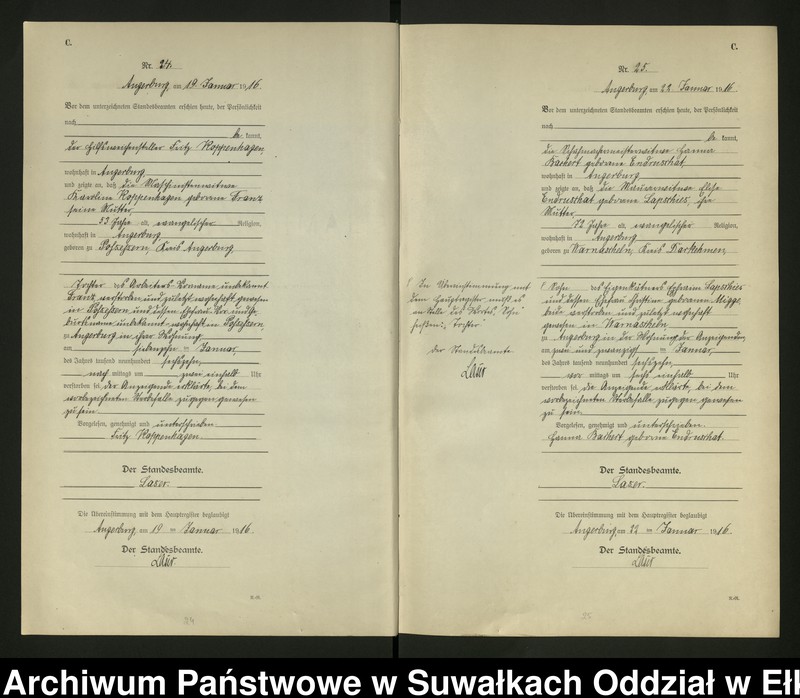 C.
Nr. 24.
Angerburg am 19 Januar 1916.
Vor dem unterzeichneten Standesbeamten erschien heute, der Persönlichkeit
nach
be kannt,
der Hilfsweichensteller Fritz Koppenhagen,
wohnhaft in Angerburg
und zeigte an, daß die Maschinistenwitwe
Karoline Koppenhagen geborene Franz
seine Mutter,
53 Jahre alt, evangelischer Religion,
wohnhaft in Angerburg
geboren zu Possessern, Kreis Angerburg,
Tochter des Arbeiters Vorname unbekannt
Franz, verstorben und zuletzt wohnhaft gewesen
in Possessern und dessen Ehefrau Vor- und Ge-
burtsname unbekannt wohnhaft in Possessern,
zu Angerburg in ihrer Wohnung,
am Januar,
des Jahres tausend neunhundert sechszehn,
nach mittags um zwei einhalb Uhr
verstorben sei, der Anzeigende erklärte, bei dem
vorbezeichneten Sterbefalle zugegen gewesen
zu sein.
Vorgelesen, genehmigt und unterschrieben
Fritz Koppenhagen.
Der Standesbeamte.
Laser.
Die Übereinstimmung mit dem Hauptregister beglaubigt
Angerburg, am 19 ten Januar 1916.
Der Standesbeamte.
Laser
24
C.
Nr. 25.
Angerburg am 22. Januar 1916.
Vor dem unterzeichneten Standesbeamten erschien heute, der Persönlichkeit
nach
be kannt,
die Schuhmachermeisterwitwe Hanna
Backert geborene Endruschat,
wohnhaft in Angerburg
und zeigte an, daß die Maurerwitwe
Endruschat geborene Lapschies, ihre
Mutter,
72 Jahre alt, evangelischer Religion,
wohnhaft in Angerburg
geboren zu Warnascheln, Kreis Darkehmen,
Sohn des Eigenkätners Ephraim Lapschies
und dessen Ehefrau geborenen
beide verstorben und zuletzt wohnhaft
gewesen in Warnascheln
zu Angerburg in der Wohnung der Anzeigenden,
am zwei und zwanzigsten Januar,
des Jahres tausend neunhundert sechszehn,
vor mittags um sechs einhalb Uhr
verstorben sei, die Anzeigende erklärte, bei dem
vorbezeichneten Sterbefalle zugegen gewesen
zu sein.
Vorgelesen, genehmigt und unterschrieben
Hanna Backert geborene Endruschat.
Der Standesbeamte.
Laser.
Die Übereinstimmung mit dem Hauptregister beglaubigt
Angerburg, am 22 ten Januar 1916.
Der Standesbeamte.
Laser
25
In Übereinstimmung mit
dem Hauptregister muß es
an Stelle des Wortes „Sohn“
heißen: „Tochter“
Der Standesbeamte
Laser
Archiwum Państwowe w Suwałkach Oddział w Eł